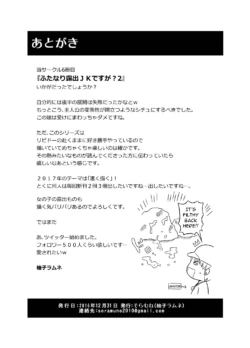 あとがき
当サークル6冊目
『ふたなり露出JKですが？2』
いかがだったでしょうか？
自分的には後半の展開は失敗だったかなとw
もっとこう、主人公の変態性が際立つようなシチュにするべきでした。
この娘は受けにまわっちゃダメですね。
ただ、このシリーズは
リビドーの赴くままに好き勝手やっているので
描いていてめちゃくちゃ楽しいのは確かです。
その熱みたいなものが読んでくださった方に伝わっていたら
嬉しいなあという感じです。
2017年のテーマは「速く描く」！
とくに何人は毎回新刊2冊3冊出したいですね…出したいですね…。
女の子の露出ものも
描く気バリバリあるのでよろしくです。
ではまた
あ、ツイッター始めました。
フォロワー500人くらい欲しいです…
愛されたいw
柚子ラムネ
IT'S FILTHY BACK HERE!!
発行日：2016年12月31日 発行：そらむね(柚子ラムネ)
連絡先：soramune2010@gmail.com